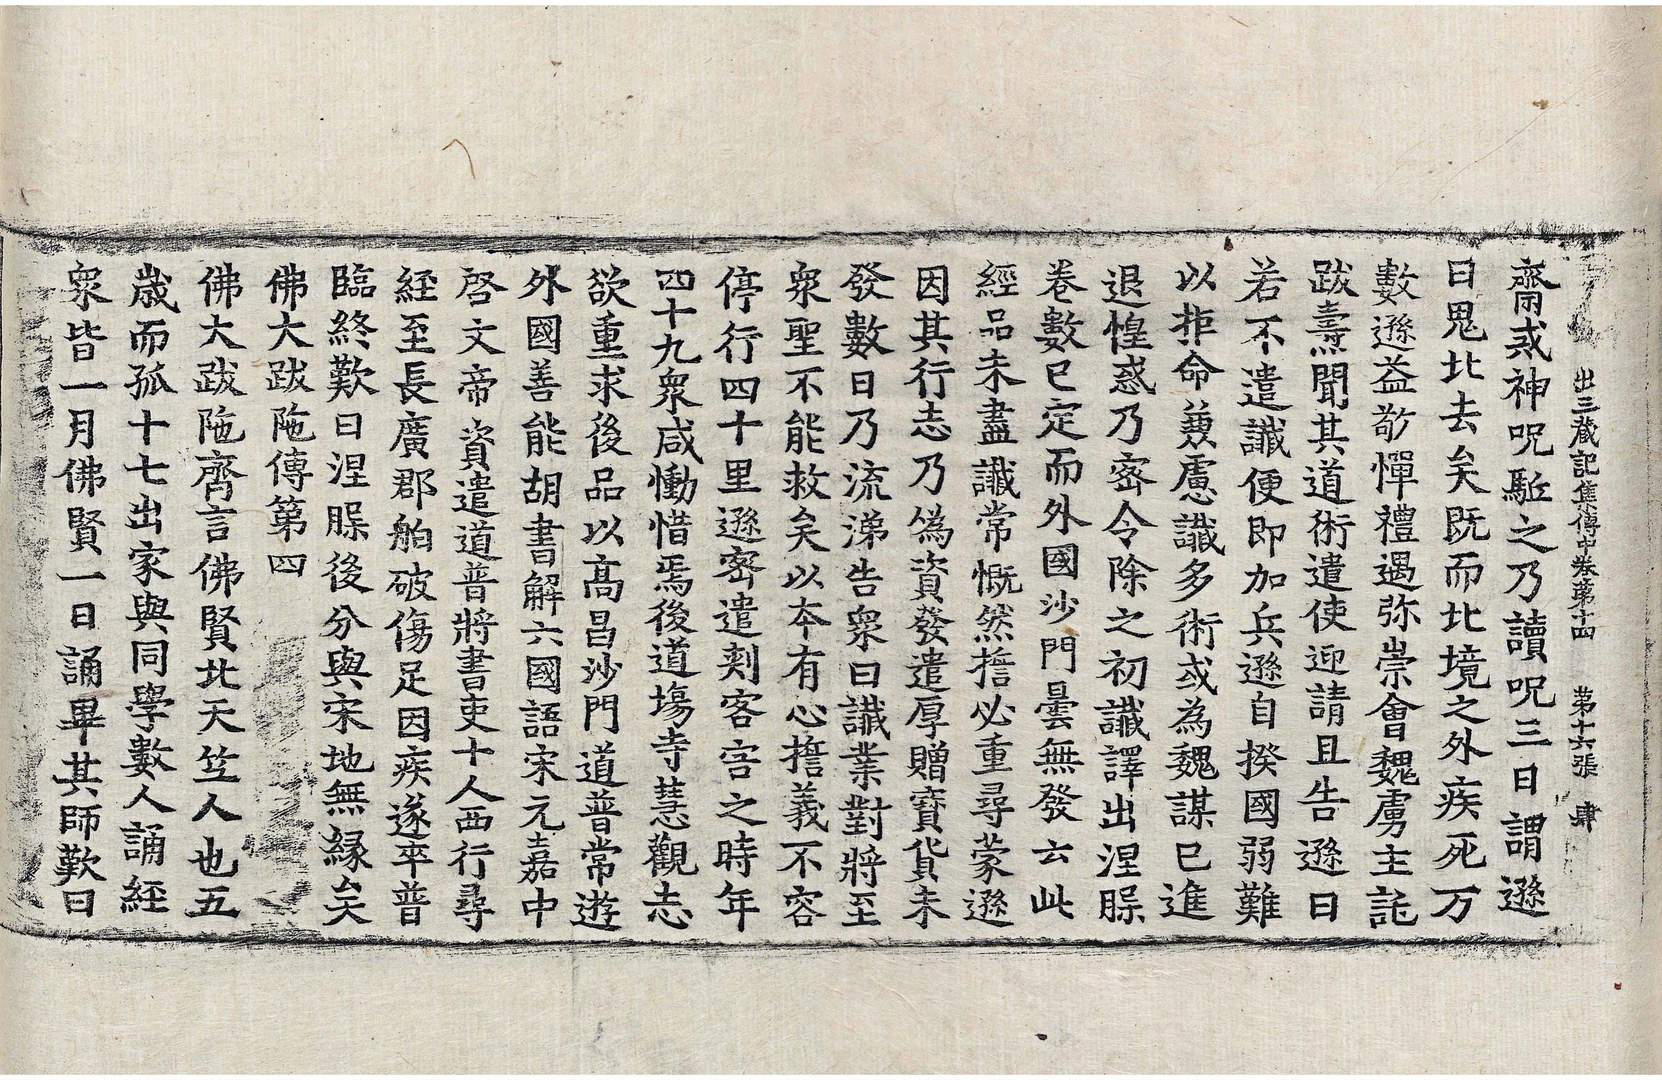 出三藏記集傳中卷第十四 第十六張 肆
齋戒神呪駈之乃讀呪三日謂遜
曰鬼北去矣既而北境之外疾死万
數遜益敬憚禮遇弥崇會魏虜主託
跋燾聞其道術遣使迎請且告遜曰
若不遣讖便即加兵遜自揆國弱難
以拒命兼慮讖多術或為魏謀已進
退惶惑乃密令除之初讖譯出涅槃
卷數已定而外國沙門曇無發云此
經品未盡讖常慨然擔必重尋蒙遜
因其行志乃偽資發遣厚贈寶貨未
發數日乃流涕告衆曰讖業對將至
衆聖不能救矣以本有心擔義不容
停行四十里遜密遣刻客害之時年
四十九衆咸慟惜焉後道場寺慧觀志
欲重求後品以高昌沙門道普常遊
外國善能胡書解六國語宋元嘉中
啓文帝資遣道普將書吏十人西行尋
經至長廣郡舶破傷足因疾遂卒普
臨終歎曰涅槃後分與宋地無緣矣
佛大跋陁傳第四
佛大跋陁齊言佛賢北天笁人也五
歲而孤十七出家與同學數人誦經
衆皆一月佛賢一日誦畢其師歎曰